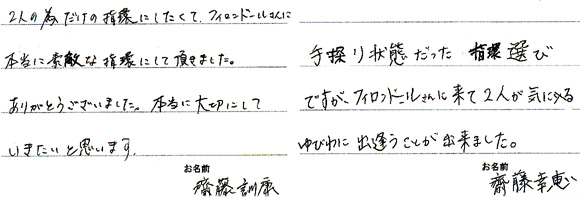 2人の為だけの指環にしたくて、フィロンドールさんに
本当に素敵な指環にして頂きました。
ありがとうございました。本当に大切にして
いきたいと思います。
お名前
齋藤 訓康
手探り状態だった 指環 選び
ですが、フィロンドールさんに来て2人が気に入る
ゆびわに出逢うことが出来ました。
お名前
齋藤幸恵